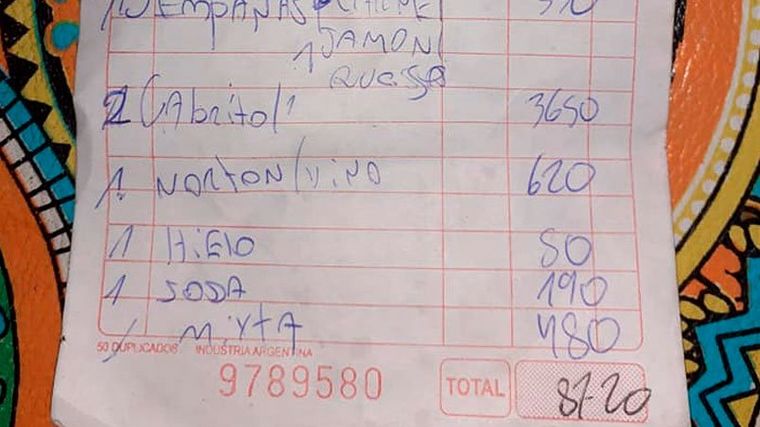 EMPANAS
1 JAMON
QUESSO
2 CAbrito/1 3650
1. NORTON/VINO 620
1 HiElO 50
1 SODA 190
1 MiXTA 480
50 DUPLICADOS INDUSTRIA ARGENTINA
9789580 TOTAL 8720